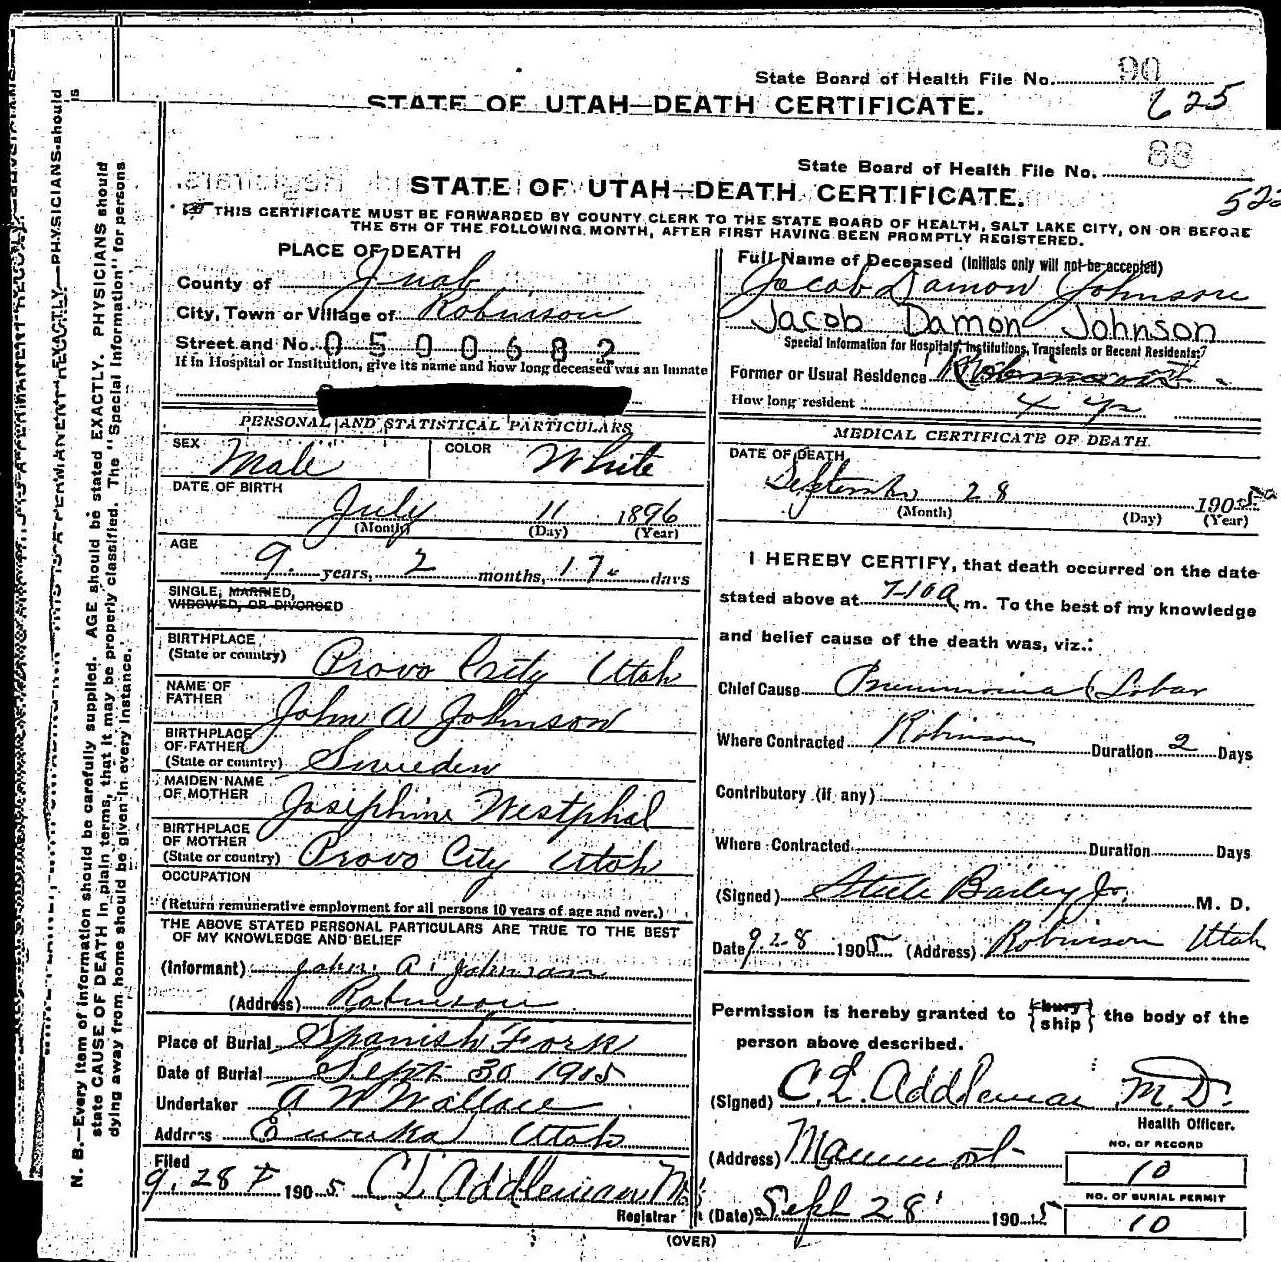 State Board of Health File No. 90
625
STATE OF UTAH—DEATH CERTIFICATE.
State Board of Health File No. 88
522
STATE OF UTAH—DEATH CERTIFICATE.
THIS CERTIFICATE MUST BE FORWARDED BY COUNTY CLERK TO THE STATE BOARD OF HEALTH, SALT LAKE CITY, ON OR BEFORE
THE 5TH OF THE FOLLOWING MONTH, AFTER FIRST HAVING BEEN PROMPTLY REGISTERED.
PLACE OF DEATH
County of Juab
City, Town or Village of Robinson
Street and No. 0500682
If in Hospital or Institution, give its name and how long deceased was an Inmate
PERSONAL AND STATISTICAL PARTICULARS
SEX Male COLOR White
DATE OF BIRTH
July 11 1896
(Month) (Day) (Year)
AGE
9 years, 2 months, 17 days
SINGLE, MARRIED,
WIDOWED, OR DIVORCED
BIRTHPLACE
(State or country) Provo City Utah
NAME OF
FATHER John A Johnson
BIRTHPLACE
OF FATHER
(State or country) Sweden
MAIDEN NAME
OF MOTHER Josephine Westphal
BIRTHPLACE
OF MOTHER
(State or country) Provo City Utah
OCCUPATION
(Return remunerative employment for all persons 10 years of age and over.)
THE ABOVE STATED PERSONAL PARTICULARS ARE TRUE TO THE BEST
OF MY KNOWLEDGE AND BELIEF
(Informant) John A. Johnson
(Address) Robinson
Place of Burial Spanish Fork
Date of Burial Sept 30 1905
Undertaker A W Wallace
Address Eureka Utah
Filed
9. 28 1905 C L Addleman M
Registrar
Full Name of Deceased (Initials only will not be accepted)
Jacob Damon Johnson
Jacob Damon Johnson
Special Information for Hospitals, Institutions, Transients or Recent Residents:
Former or Usual Residence Robinson
How long resident 4 yr
MEDICAL CERTIFICATE OF DEATH.
DATE OF DEATH
September 28 1905
(Month) (Day) (Year)
I HEREBY CERTIFY, that death occurred on the date
stated above at 7-10 a. m. To the best of my knowledge
and belief cause of the death was, viz.:
Chief Cause Pneumonia (Lobar
Where Contracted Robinson Duration 2 Days
Contributory (if any)
Where Contracted Duration Days
(Signed) Steele Bailey Jr. M. D.
Date 9.28 1905 (Address) Robinson Utah
Permission is hereby granted to { bury ship } the body of the
person above described.
(Signed) C. L. Addleman M.D.
Health Officer.
(Address) Mammoth
NO. OF RECORD
10
NO. OF BURIAL PERMIT
(Date) Sept 28 1905 10
(OVER)
N. B.—Every item of information should be carefully supplied. AGE should be stated EXACTLY. PHYSICIANS should
state CAUSE OF DEATH in plain terms, that it may be properly classified. The "Special Information" for persons
dying away from home should be given in every instance.